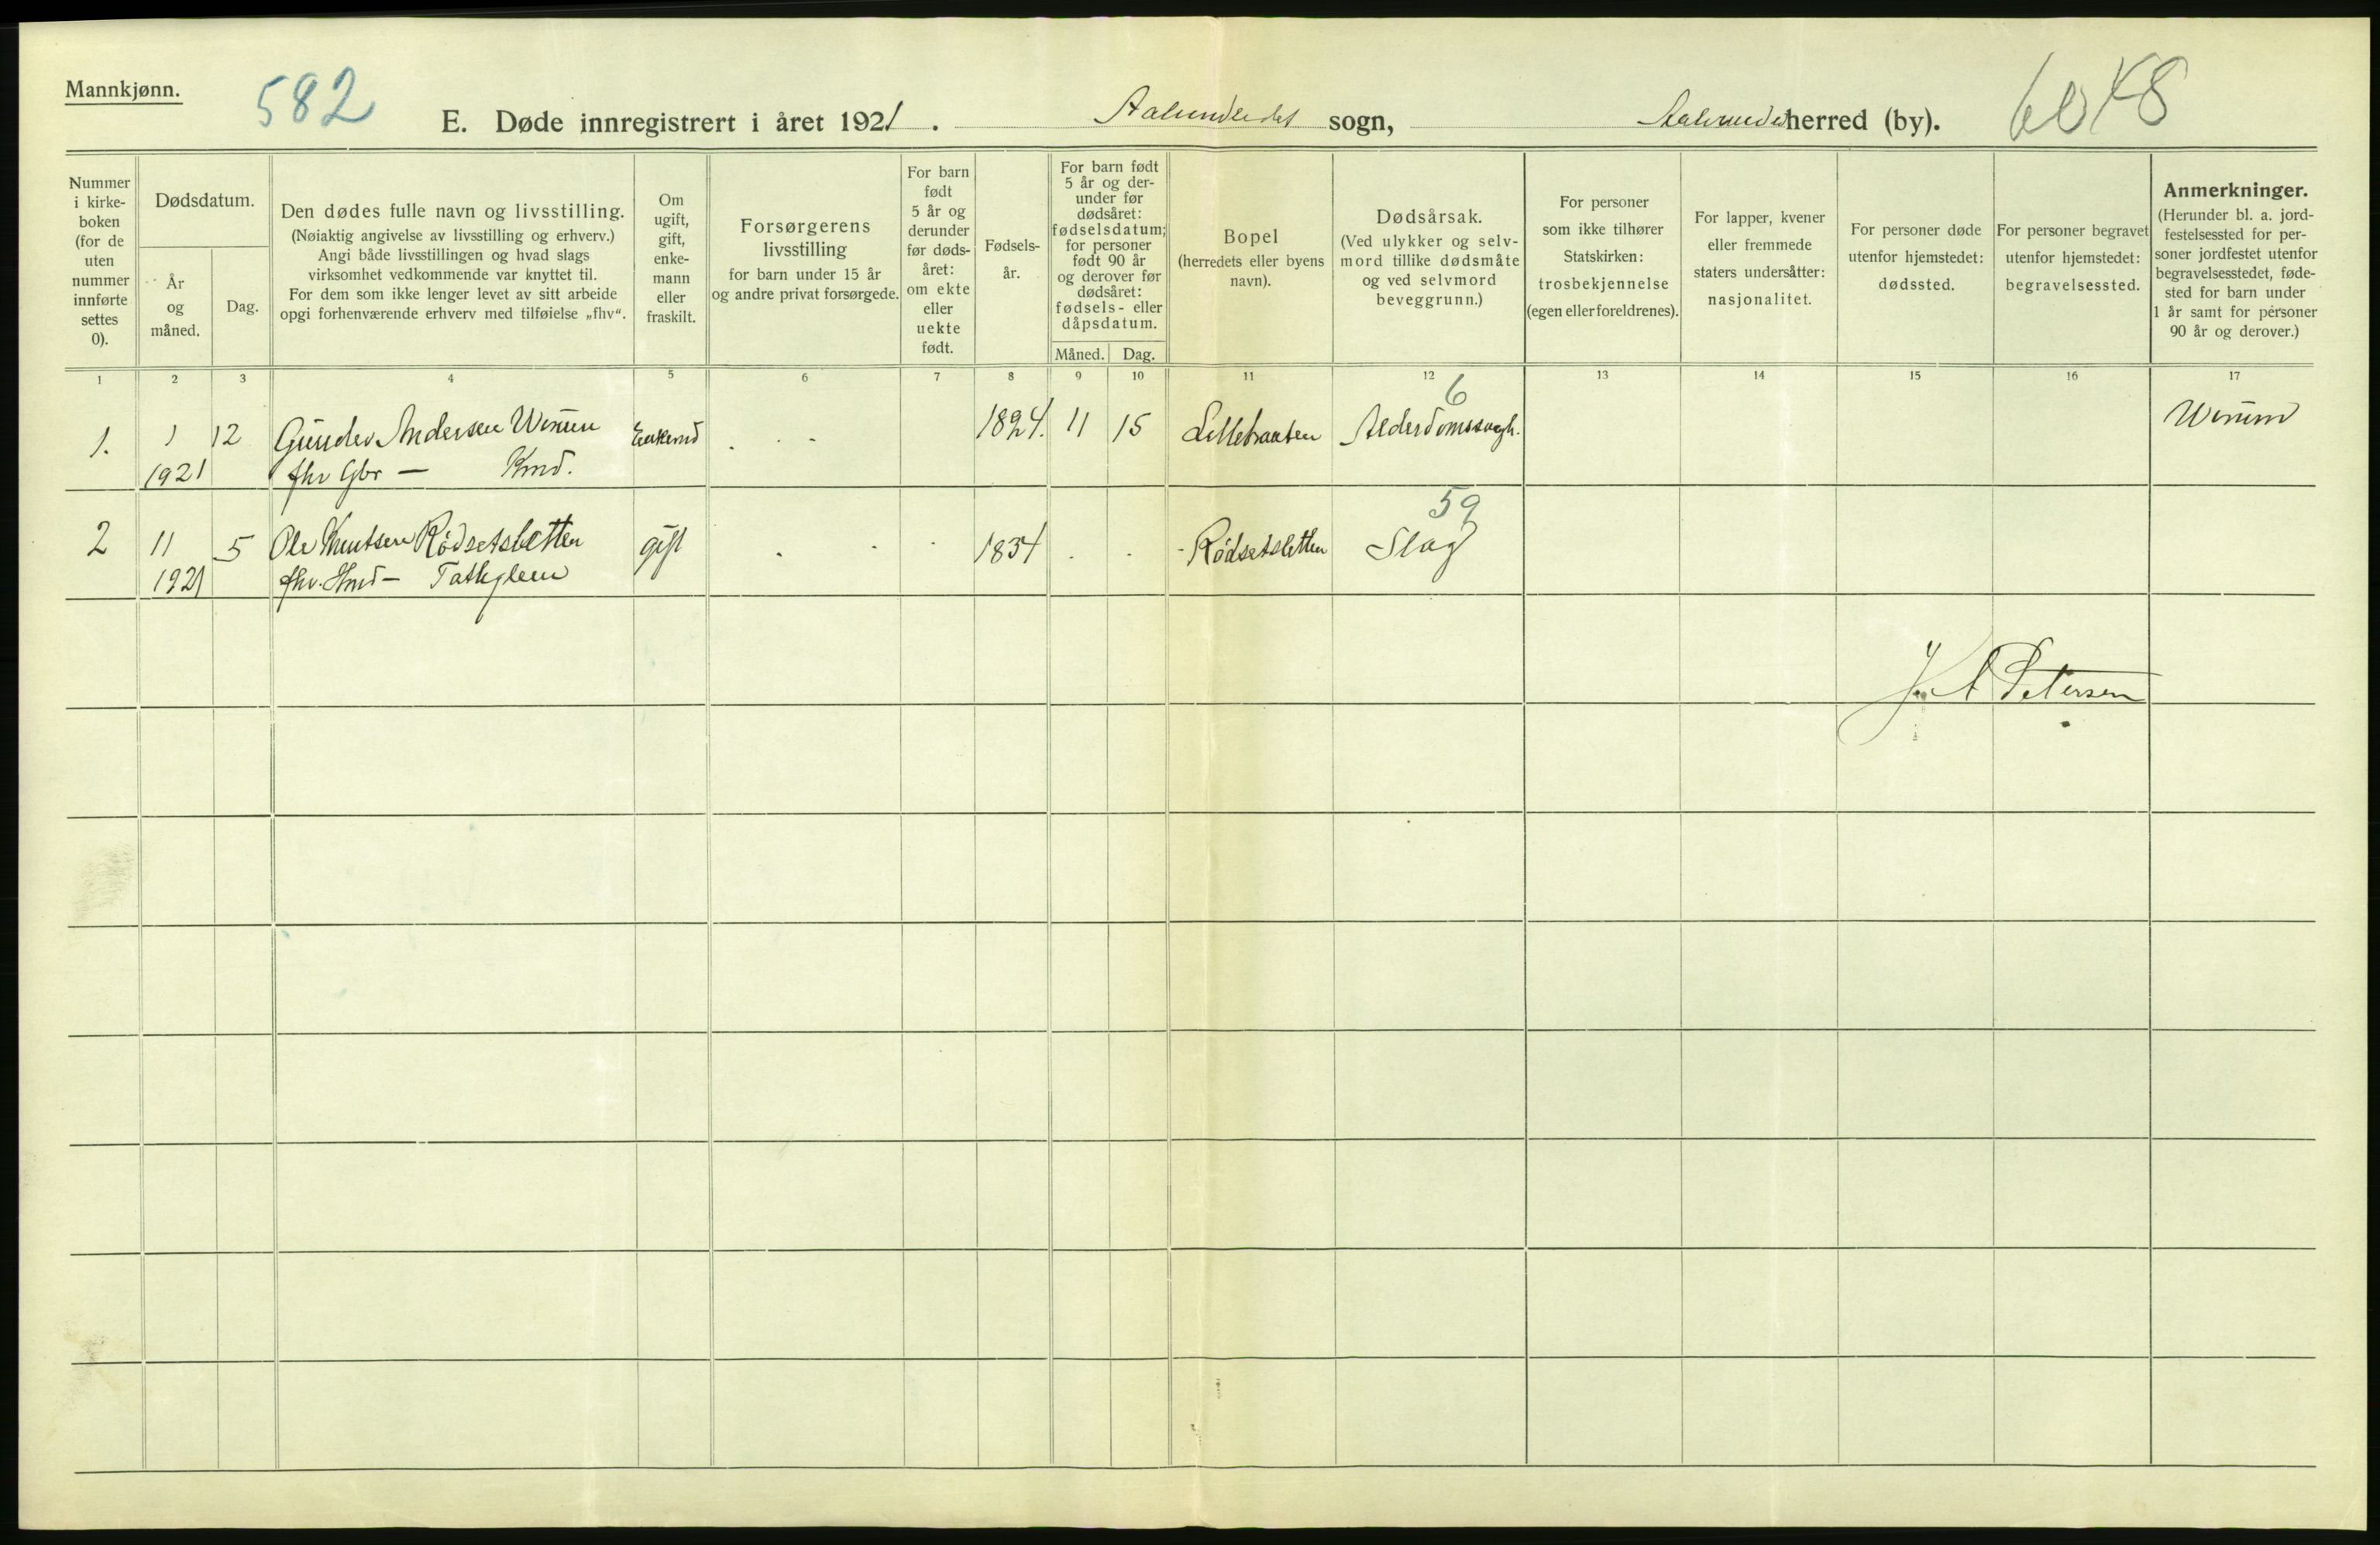 Mannkjønn.
582
E. Døde innregistrert i året 1921. Aalesundets sogn, herred (by).
6048
Nummer i kirkeboken (for de uten nummer innførte settes 0).
Dødsdatum.
År og måned.
Dag.
Den dødes fulle navn og livsstilling.
(Nøiaktig angivelse av livsstilling og erhverv.)
Angi både livsstillingen og hvad slags
virksomhet vedkommende var knyttet til.
For dem som ikke lenger levet av sitt arbeide
opgi forhenværende erhverv med tilføielse „fhv“.
Om ugift, gift, enkemann eller fraskilt.
Forsørgerens livsstilling
for barn under 15 år
og andre privat forsørgede.
For barn født 5 år og derunder før dødsåret: om ekte eller uekte født.
Fødselsår.
For barn født 5 år og derunder før dødsåret: fødselsdatum; for personer født 90 år og derover før dødsåret: fødsels- eller dåpsdatum.
Måned.
Dag.
Bopel
(herredets eller byens navn).
Dødsårsak.
(Ved ulykker og selvmord tillike dødsmåte og ved selvmord beveggrunn.)
For personer som ikke tilhører Statskirken: trosbekjennelse (egen eller foreldrenes).
For lapper, kvener eller fremmede staters undersåtter: nasjonalitet.
For personer døde utenfor hjemstedet: dødssted.
For personer begravet utenfor hjemstedet: begravelsessted.
Anmerkninger.
(Herunder bl. a. jordfestelsessted for personer jordfestet utenfor begravelsesstedet, fødested for barn under 1 år samt for personer 90 år og derover.)
1 2 3 4 5 6 7 8 9 10 11 12 13 14 15 16 17
6
1. 1 12 Gunder Andersen Enkemd 1824. 11 15 Lillebraaten Alderdomssvagh.
1921 fhv Gbr —
59
2 11 5 Ole Knutsen Rødsetsletten gift 1834 Rødsetsletten Slag
1921 fhv. Hmd —
Petersen